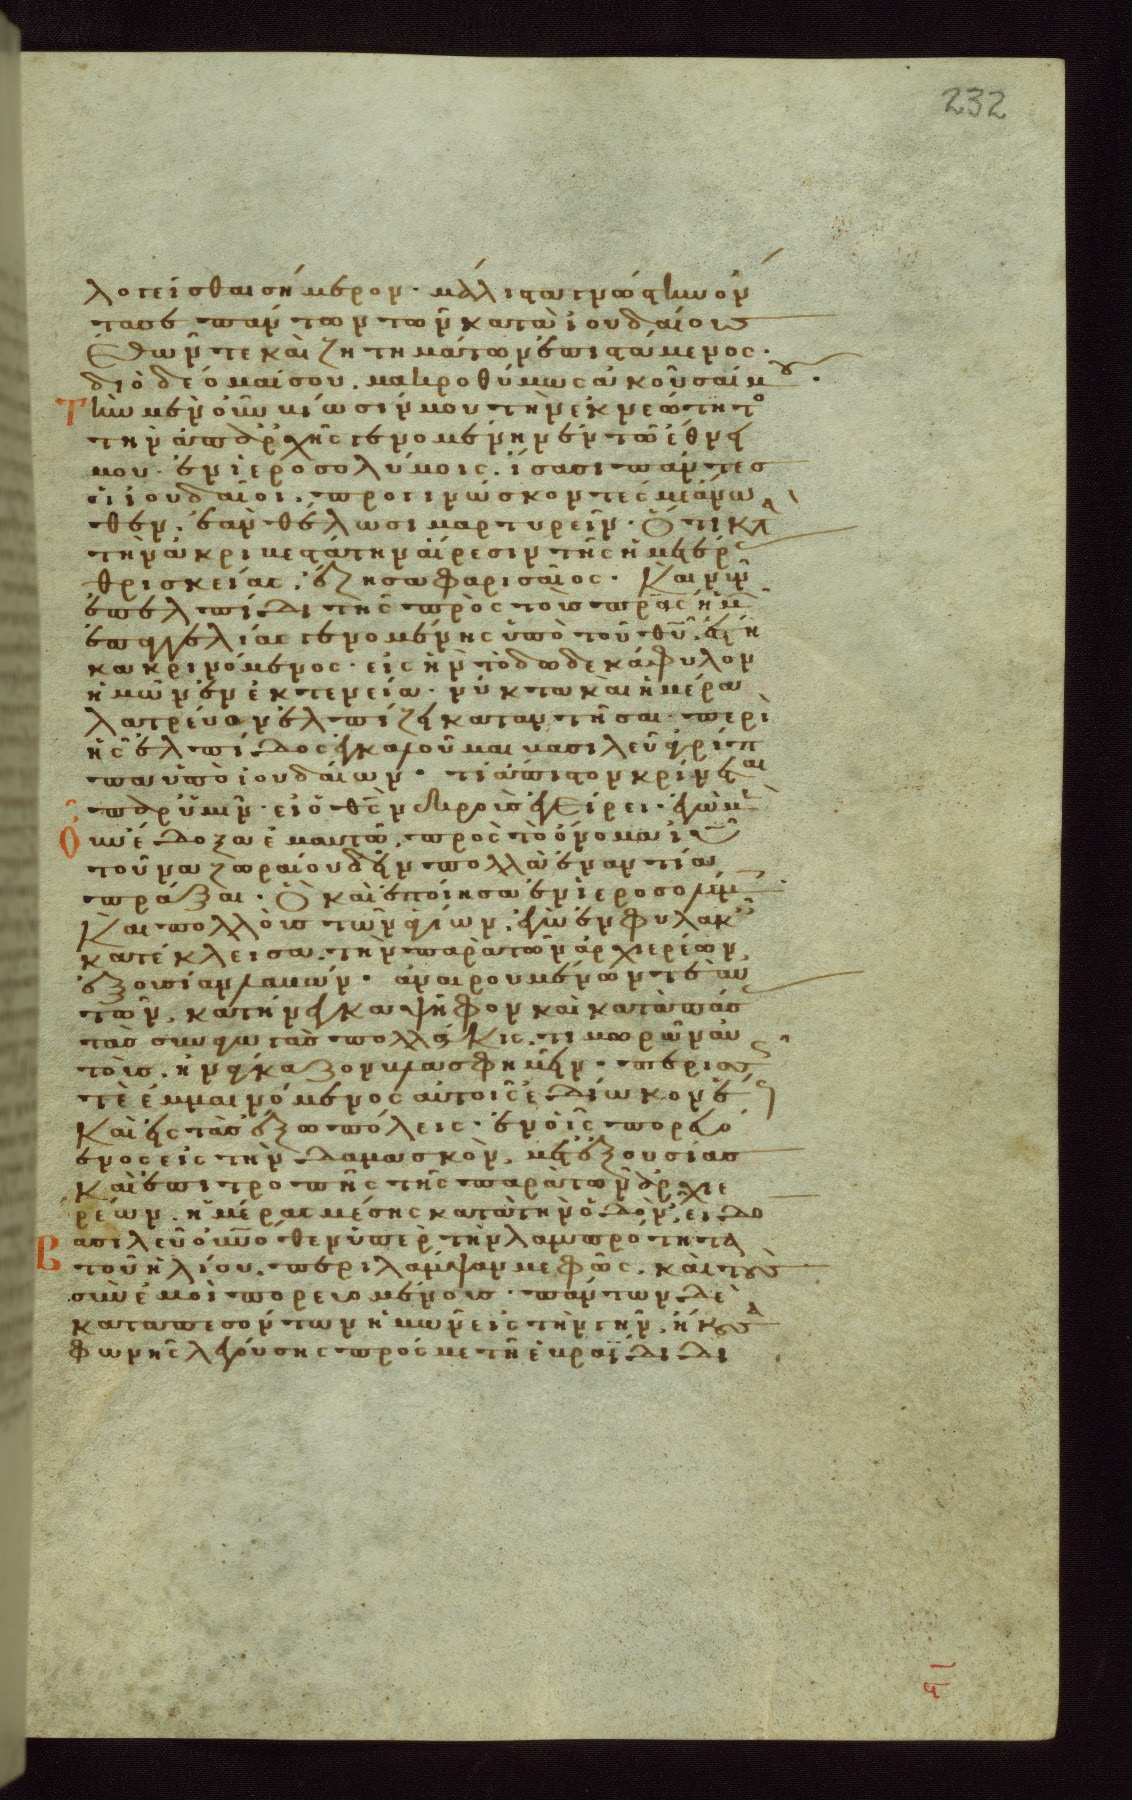 λογεῖσθαι σήμερον· μάλιστα γνώστην ὄν
τα σε πάντων τῶν κατὰ ἰουδαίους
ἐθῶν τε καὶ ζητημάτων ἐπιστάμενος·
διὸ δέομαί σου, μακροθύμως ἀκοῦσαί μου.
Τὴν μὲν οὖν βίωσίν μου τὴν ἐκ νεότητο
τὴν ἀπ ἀρχῆς γενομένην ἐν τῶ ἔθνει
μου· ἐν ἱεροσολύμοις, ἴσασι πάντες
οἱ ἰουδαῖοι, προγινώσκοντές με ἄνω
θεν, ἐὰν θέλωσι μαρτυρεῖν· Ὅτι κατ
τὴν ἀκριβεστάτην αἵρεσιν τῆς ἡμετέρ
θρισκείας, ἔζησα φαρισαῖος· Καὶ νῦν
ἐπ ἐλπίδι τῆς πρὸς τοὺς πρας ἡμ
ἐπαγγελίας γενομένης ὑπὸ τοῦ θυ, ἕστη
κα κρινόμενος· εἰς ἣν τὸ δωδεκάφυλον
ἡμῶν ἐν ἐκτενεία· νύκτα καὶ ἡμέραν
λατρεύον ἐλπίζει καταντῆσαι· περὶ
ἧς ἐλπίδος ἐγκαλοῦμαι βασιλεῦ ἀγρίπ
πα ὑπὸ ἰουδαίων· τί ἄπιστον κρίνεται
παρ ὑμῖν· εἰ ὁ θς νεκροὺς ἐγείρει· ἐγὼ μὲν
Οὖν ἔδοξα ἐμαυτῶ, πρὸς τὸ ὄνομα ιυ
τοῦ ναζωραίου δεῖν πολλὰ ἐναντία
πράξαι· Ὃ καὶ ἐποίησα ἐν ἱεροσολύμ
Καὶ πολλοὺς τῶν ἁγίων, ἐγὼ ἐν φυλακ
κατέκλεισα, τὴν παρὰ τῶν ἀρχιερέων
ἐξουσίαν λαβών· ἀναιρουμένων τε αὐ
τῶν, κατήνεγκα ψῆφον καὶ κατὰ πάσ
τὰς συναγωγὰς πολλάκις, τιμωρῶν αὐ
τοὺς, ἠνάγκαζον βλασφημεῖν· περισσ
τε ἐμμαινόμενος αὐτοῖς ἐδίωκον ἕως
Καὶ εἰς τὰς ἔξω πόλεις· ἐν οἷς πορευό
ενος εἰς τὴν δαμασκὸν, μετ ἐξουσίας
Καὶ ἐπιτροπῆς τῆς παρὰ τῶν ἀρχιε
ρέων, ἡμέρας μέσης κατὰ τὴν ὁδὸν, εἶδο
Βασιλεῦ οὐνοθεν ὑπὲρ τὴν λαμπρότητα
τοῦ ἡλίου, περιλάμψαν με φῶς, καὶ τοὺς
σὺν ἐμοὶ πορευομένους· πάντων δὲ
καταπεσόντων ἡμῶν εἰς τὴν γῆν, ἤκουσα
φωνῆς λεγούσης πρός με τῆ ἑβραΐδι δι
232